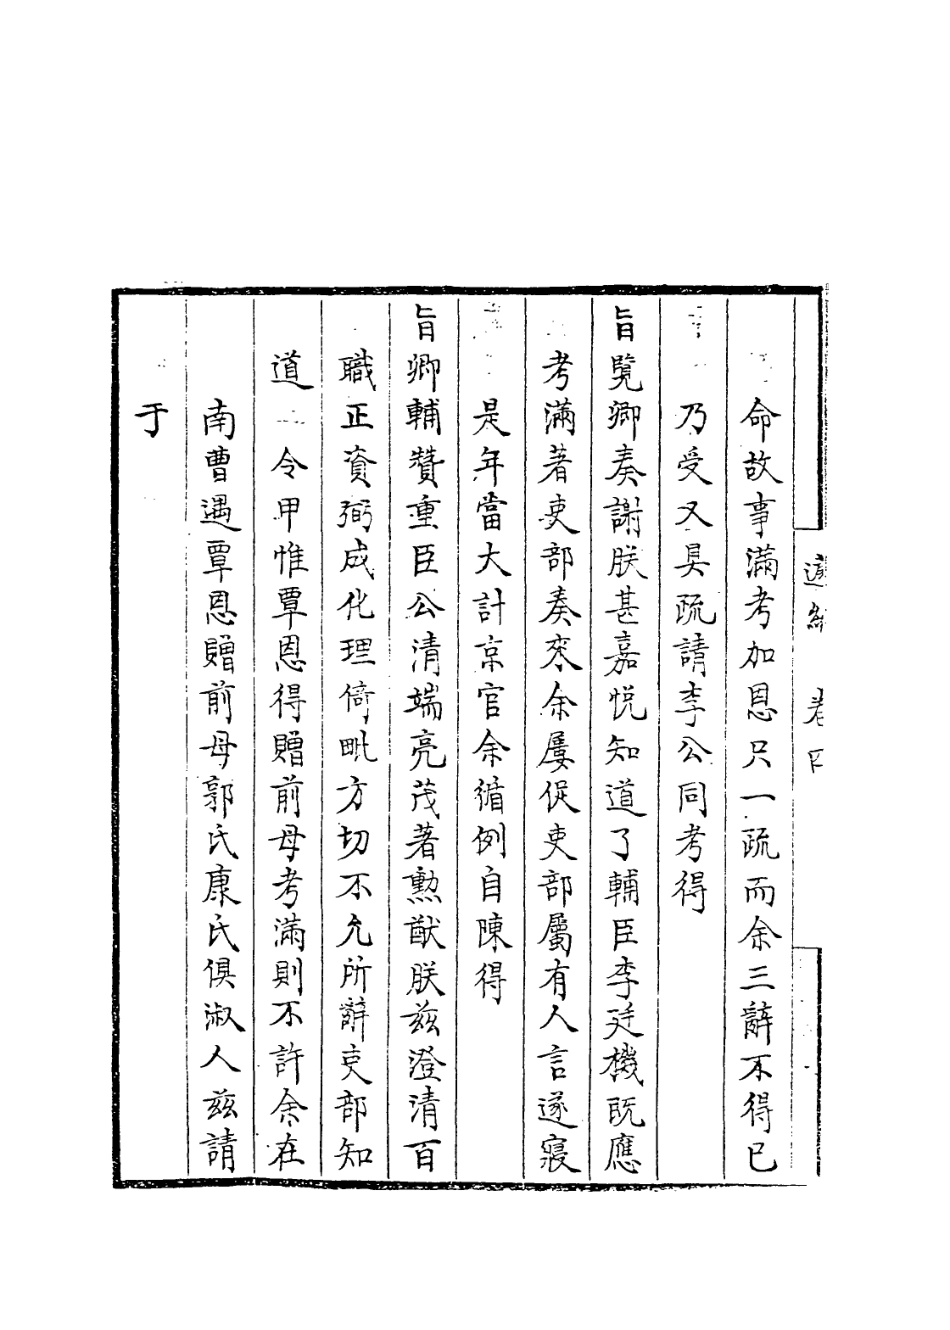 命故事滿考加恩只一疏而余三辭不得已
乃受又具疏請李公同考得
旨覽卿奏謝朕甚嘉悅知道了輔臣李廷機既應
考滿著吏部奏來余屢促吏部屬有人言遂寢
是年當大計京官余循例自陳得
旨卿輔贊重臣公清端亮茂著勲猷朕茲澄清百
職正資弼成化理倚毗方切不允所辭吏部知
道 令甲惟覃恩得贈前母考滿則不許余在
南曹遇覃恩贈前母郭氏康氏俱淑人茲請
于
卷四